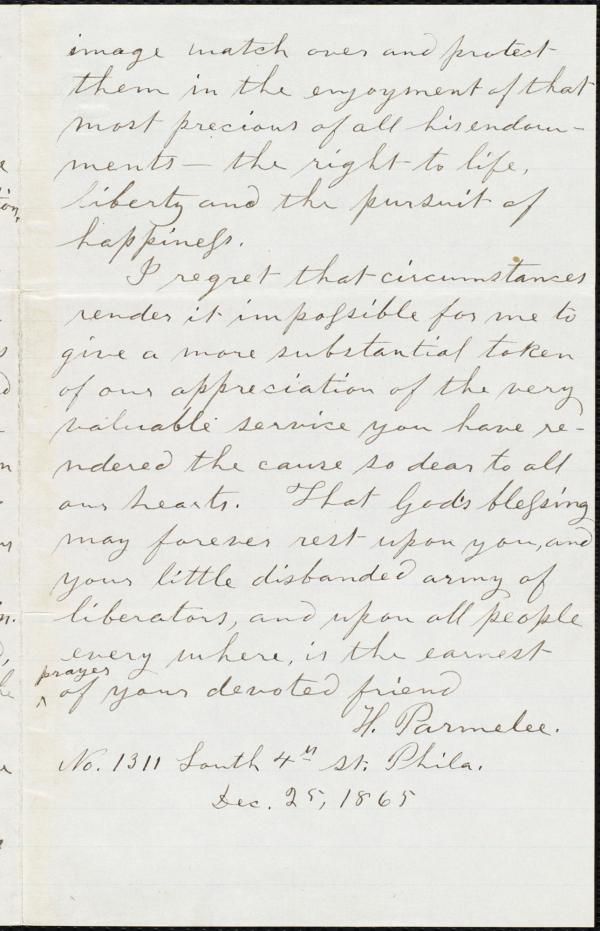 image watch over and protect
them in the enjoyment of that
most precious of all his endow-
ments — the right to life,
liberty and the pursuit of
happiness.
I regret that circumstances
render it impossible for me to
give a more substantial token
of our appreciation of the very
valuable service you have re-
ndered the cause so dear to all
our hearts. That God's blessing
may forever rest upon you, and
your little disbanded army of
liberators, and upon all people
every where, is the earnest
prayer
^ of your devoted friend
H. Parmelee.
No. 1311 South 4th St. Phila.
Dec. 25, 1865